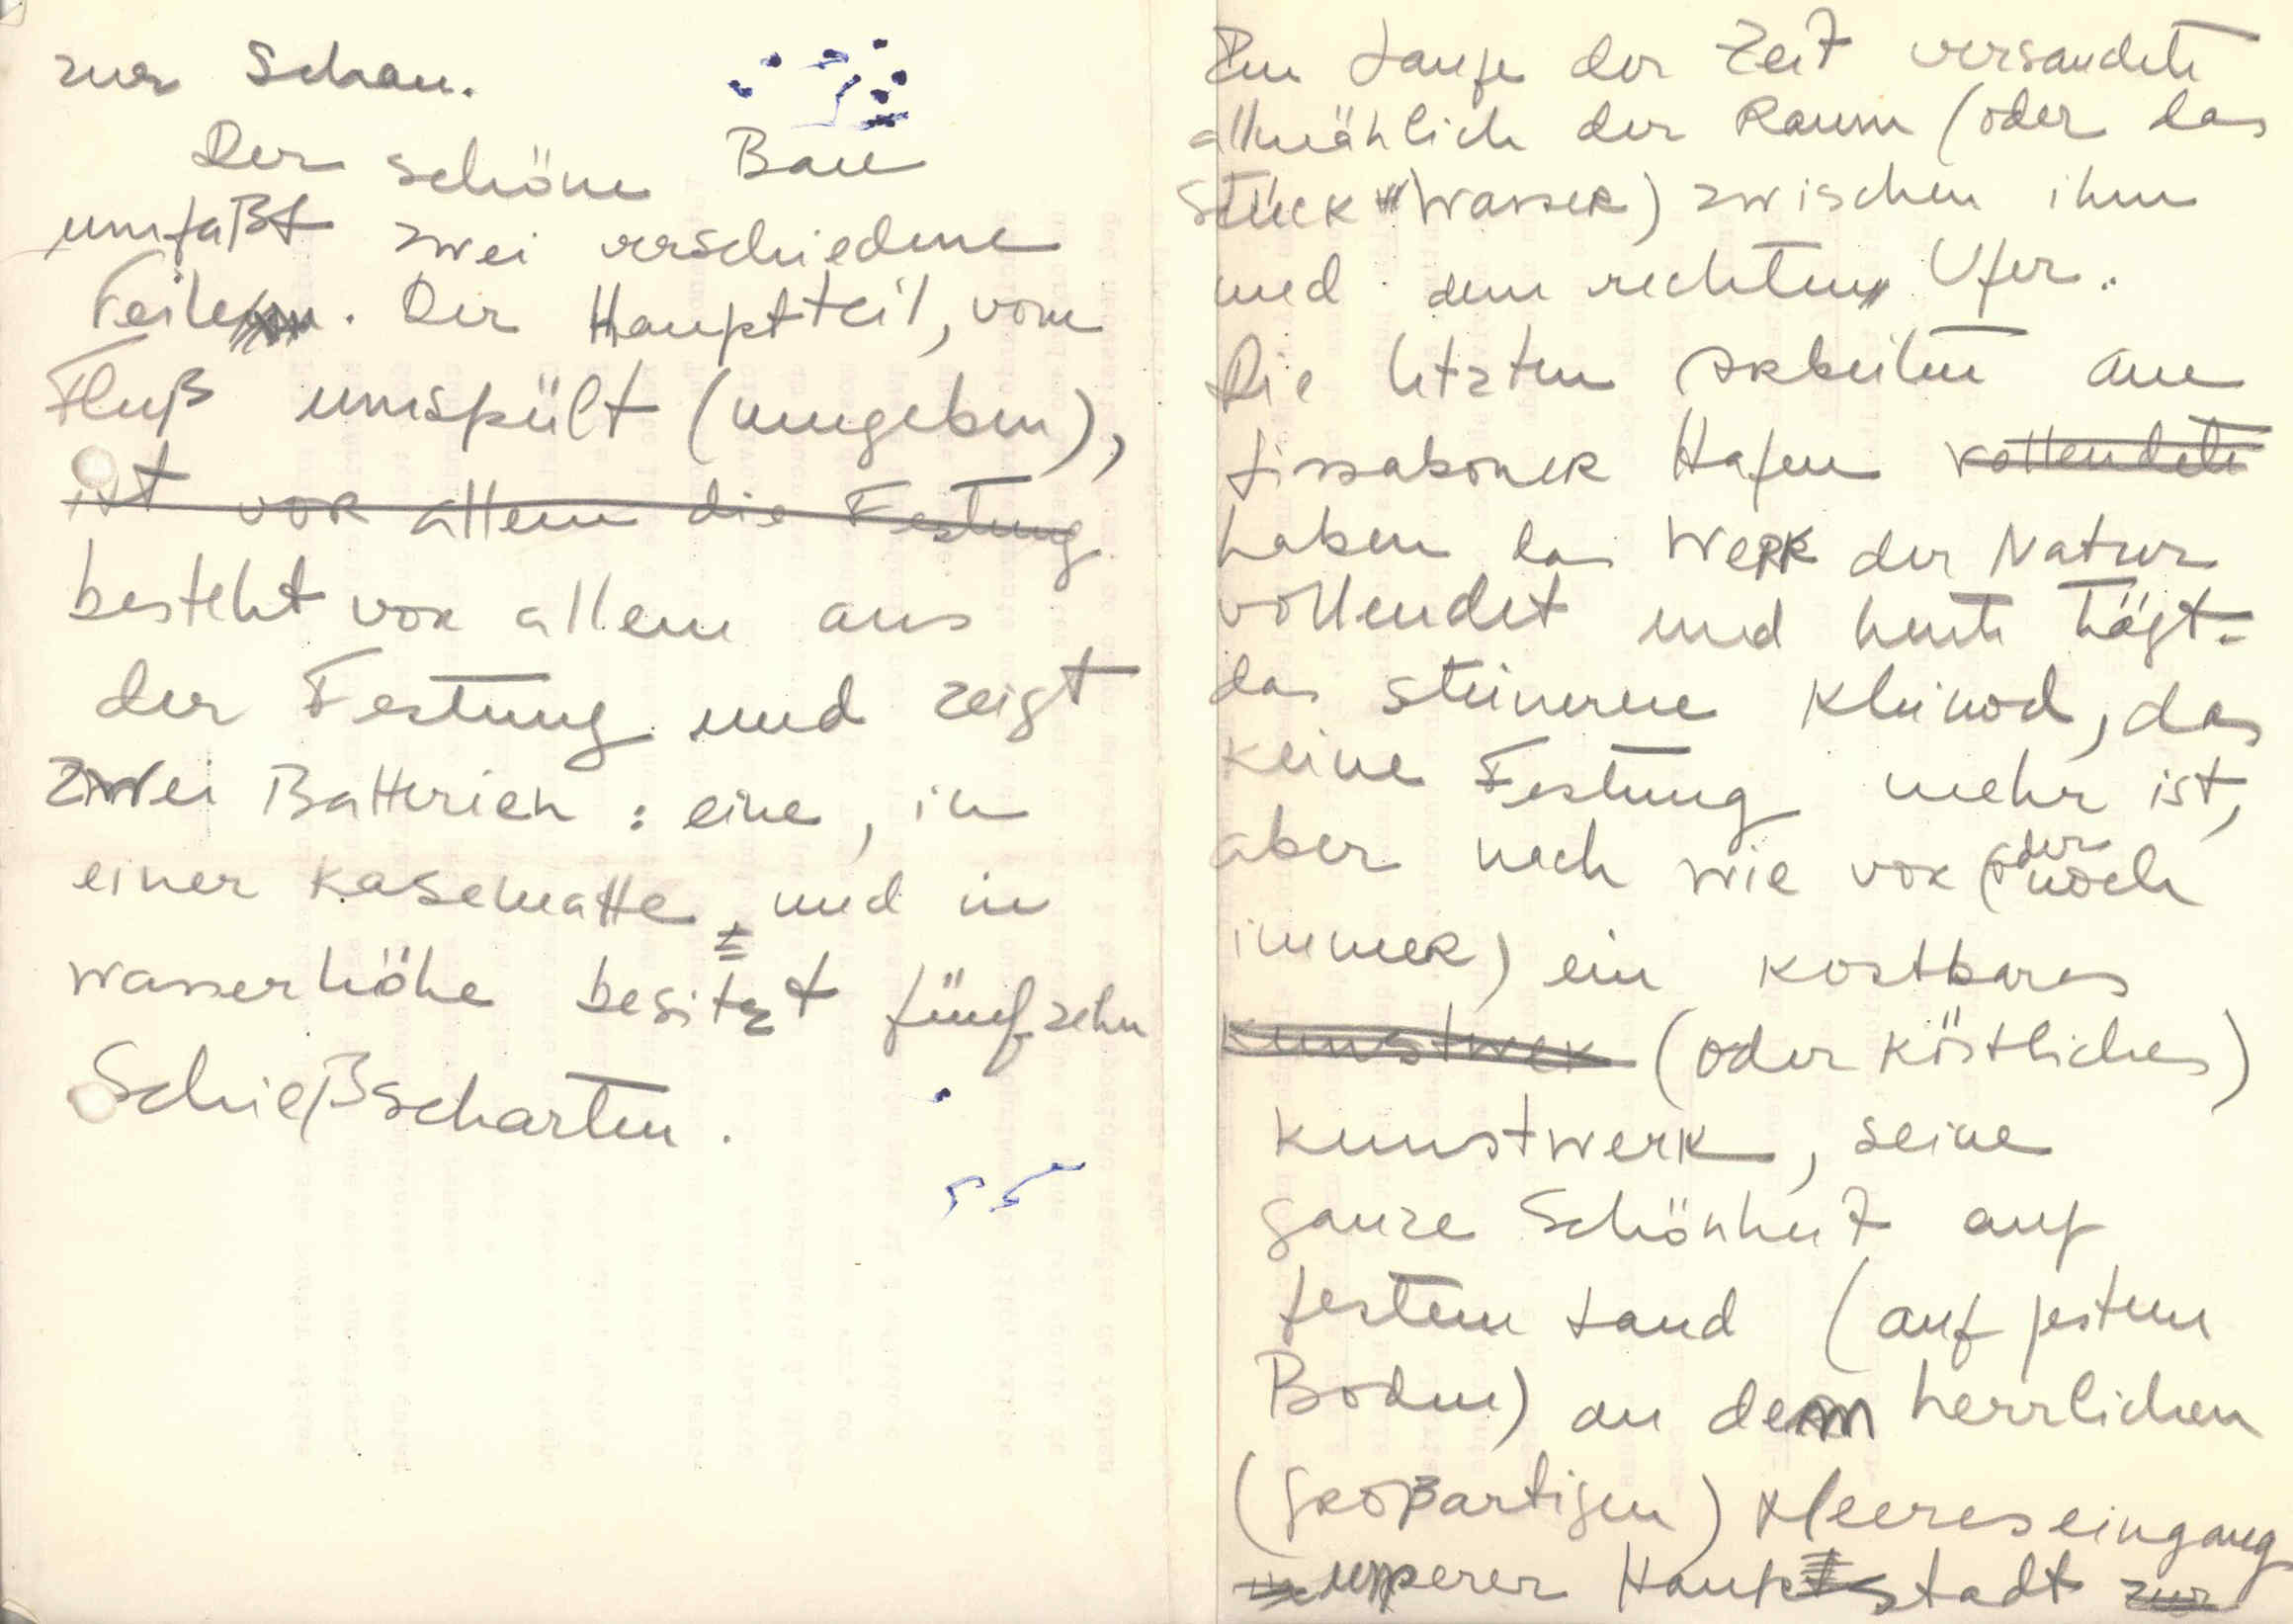 zur Schau.
Der schöne Bau
umfaßt zwei verschiedene
Teile. Der Hauptteil, vom
Fluß umspült (umgeben),
ist vor allem die Festung
besteht vor allem aus
der Festung und zeigt
zwei Batterien: eine, in
einer Kasematte, und in
Wasserhöhe besitzt fünfzehn
Schießscharten.
Im Laufe der Zeit versandete
allmählich der Raum (oder das
Stück Wasser) zwischen ihm
und dem rechten Ufer.
Die letzten Arbeiten am
Lissaboner Hafen vollendete
haben das Werk der Natur
vollendet und heute trägt
das steinerne Kleinod, das
keine Festung mehr ist,
aber nach wie vor (oder noch
immer) ein kostbares
Kunstwerk (oder köstliches)
Kunstwerk, seine
ganze Schönheit auf
festem Land (auf festem
Boden) an dem herrlichen
(großartigen) Meereseingang
unserer Hauptstadt zur